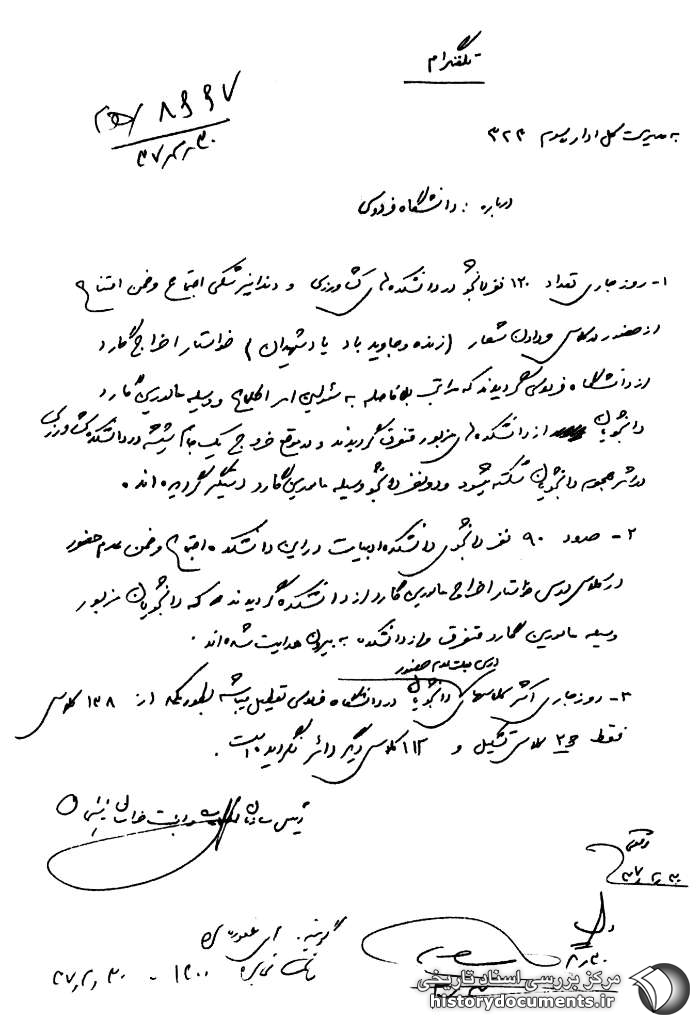 تلفنگرام
۸۶۶۷ / ه۱۲
۳۷٫۲٫۳۰
به مدیریت کل اداره سوم ۳۲۳
درباره : دانشگاه فردوسی
۱- روز جاری تعداد ۱۲۰ نفر دانشجو در دانشکده‌های کشاورزی و دندانپزشکی اجتماع و ضمن امتناع
از حضور در کلاس و دادن شعار (زنده و جاوید باد یاد شهیدان) خواستار اخراج گارد
از دانشگاه فردوسی گردیدند که مراتب بلافاصله به مسئولین امر اطلاع و وسیله مامورین گارد
دانشجویان از دانشکده‌های مزبور متفرق گردیدند و در موقع خروج یک جام شیشه در دانشکده کشاورزی
در اثر هجوم دانشجویان شکسته میشود و دو نفر دانشجو وسیله مامورین گارد دستگیر گردیده‌اند .
۲- حدود ۹۰ نفر دانشجوی دانشکده ادبیات در این دانشکده اجتماع و ضمن عدم حضور
در کلاس درس خواستار اخراج مامورین گارد از دانشکده گردیدند که دانشجویان مزبور
وسیله مامورین گارد متفرق و از دانشکده به بیرون هدایت شده‌اند .
۳- روز جاری اکثر کلاسهای درس بعلت عدم حضور دانشجویان در دانشگاه فردوسی تعطیل میباشد بطوریکه از ۱۳۸ کلاس
فقط کلاس تشکیل و ۱۱۲ کلاس دیگر دائر نگردیده است .
رئیس سازمان اطلاعات و امنیت خراسان
۳۷٫۲٫۳۰
گوینده :
ساعت مخابره ۱۴۰۰ - ۳۷٫۲٫۳۰
مرکز بررسی اسناد تاریخی
historydocuments.ir